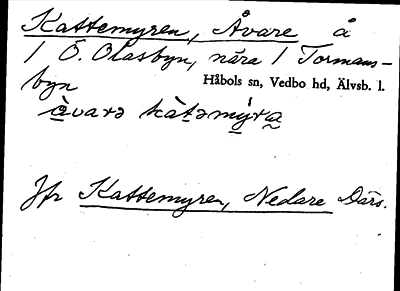 Kattemyren, Åvare å
1 Ö. Olasbyn, nära 1 Tormans-
byn
Håbols sn, Vedbo hd, Älvsb. l.
àvarə kàtəmýra
Jfr Kattemyren, Nedare Därs.